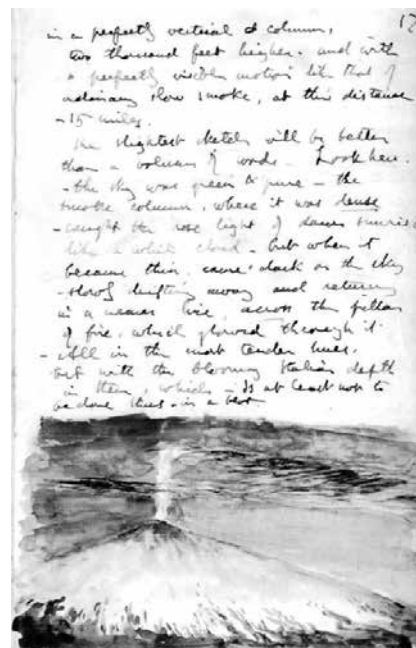 17
in a perfectly vertical column,
two thousand feet higher. and with
a perfectly visible motion like that of
ordinary slow smoke, at this distance
- 15 miles.
The slightest sketch will be better
than a volume of words - Look here.
- the sky was green & pure - the
smoke column, where it was dense
- caught the rose light of dawn sunrise
like a white cloud - but when it
became thin, came dark on the sky
- slowly drifting away and returning
in a nearer line, across the pillar
of fire, which glowed through it
- All in the most tender hues.
but with the blooming Italian depth
in them, which - is at least not to
be done thus - in a